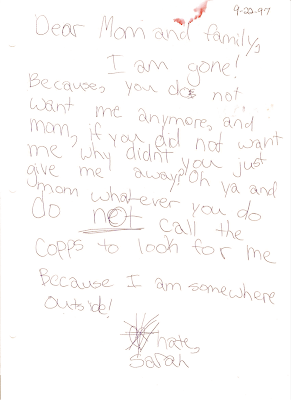 9-22-97
Dear Mom and family,
I am gone!
Because, you do not
want me anymore, and
mom, if you did not want
me why didnt you just
give me away? Oh ya and
mom whatever you do
do not call the
Copps to look for me
Because I am somewhere
outside!
hate,
Sarah